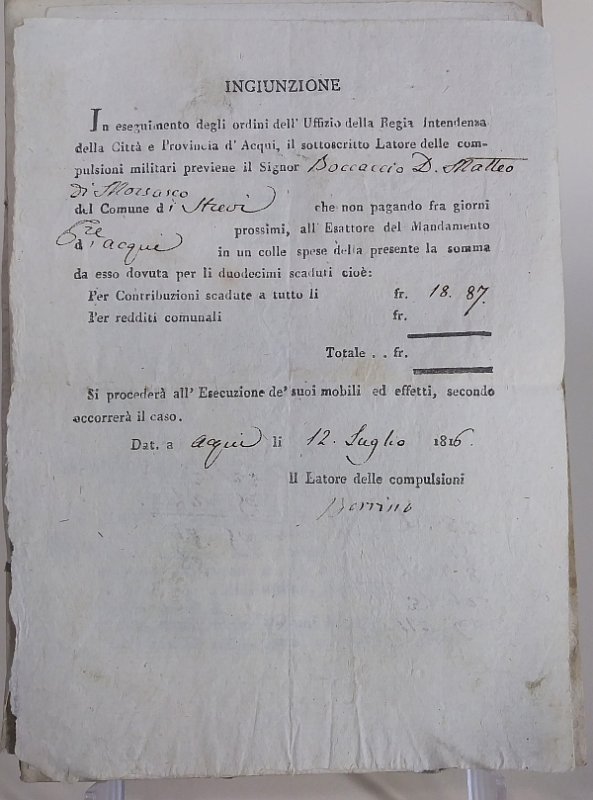 INGIUNZIONE
In eseguimento degli ordini dell' Uffizio della Regia Intendenza
della Città e Provincia d' Acqui, il sottoscritto Latore delle com-
pulsioni militari previene il Signor Boccaccio D. Matteo
di Morsasco
del Comune di Strevi che non pagando fra giorni
tre prossimi, all' Esattore del Mandamento
di acqui in un colle spese della presente la somma
da esso dovuta per li duodecimi scaduti cioè:
Per Contribuzioni scadute a tutto li fr. 18. 87.
Per redditi comunali fr.
Totale . . fr.
Si procederà all' Esecuzione de' suoi mobili ed effetti, secondo
occorrerà il caso.
Dat. a acqui li 12. Luglio 1816.
Il Latore delle compulsioni
Berrino